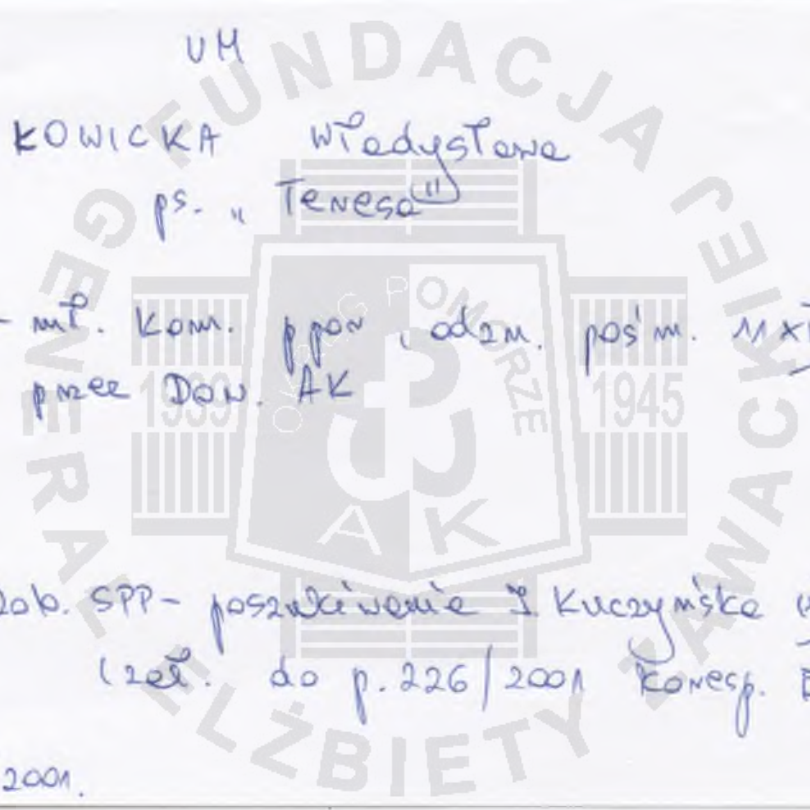 VM
ŁOWICKA Władysława
ps. "Teresa"
- mł. kom. ppor, odzn. pośm. 11 XI
przez Dow. AK
zob. SPP- poszukiwanie I. Kuczyńska
(zał. do p. 226/2001 Koresp.
2001.
FUNDACJA GENERAŁ ELŻBIETY ZAWACKIEJ
OKRĘG POMORZE
1939 1945
AK